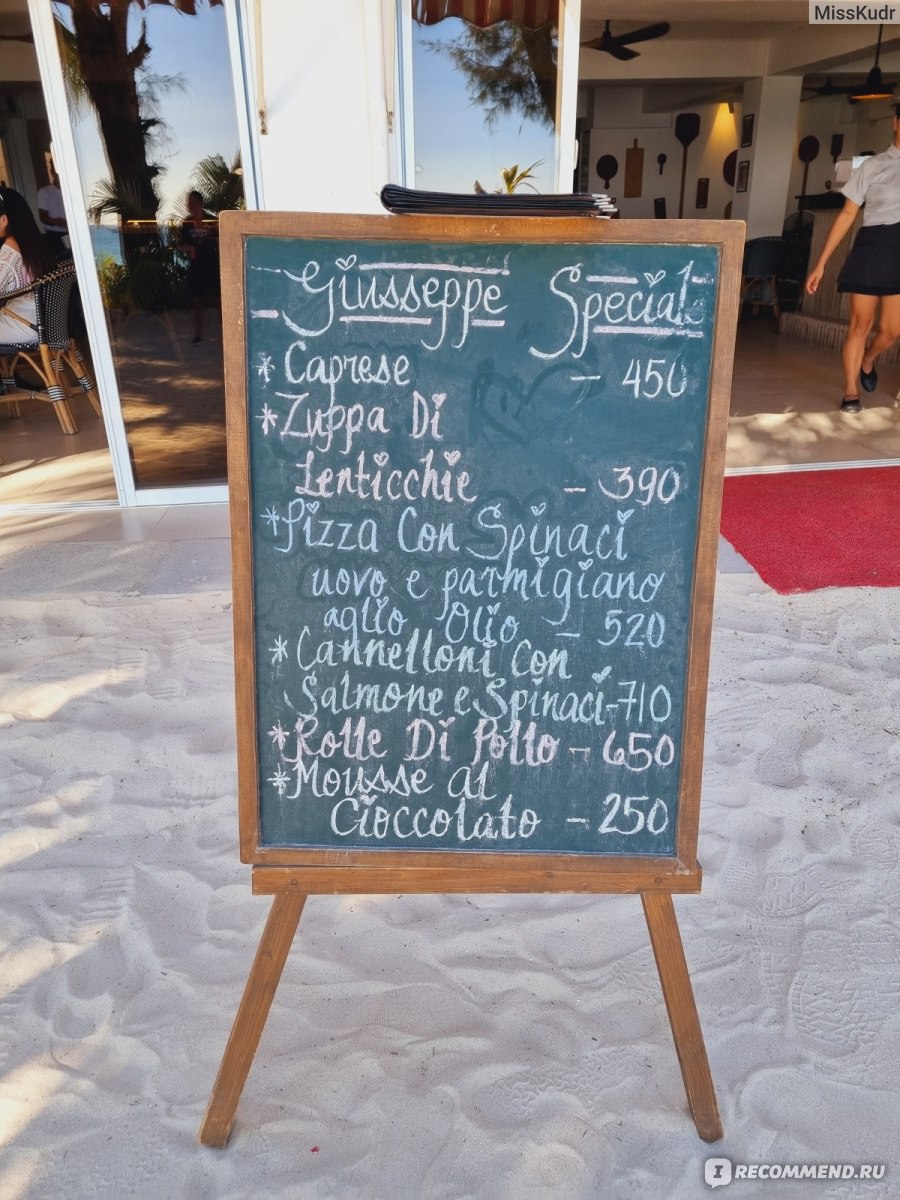 MissKudr
Giuseppe Special
* Caprese - 450
* Zuppa Di
Lenticchie - 390
* Pizza Con Spinaci
uovo e parmigiano
aglio Olio - 520
* Cannelloni con
Salmone e Spinaci - 710
* Rolle Di Pollo - 650
* Mousse al
Cioccolato - 250
I RECOMMEND.RU